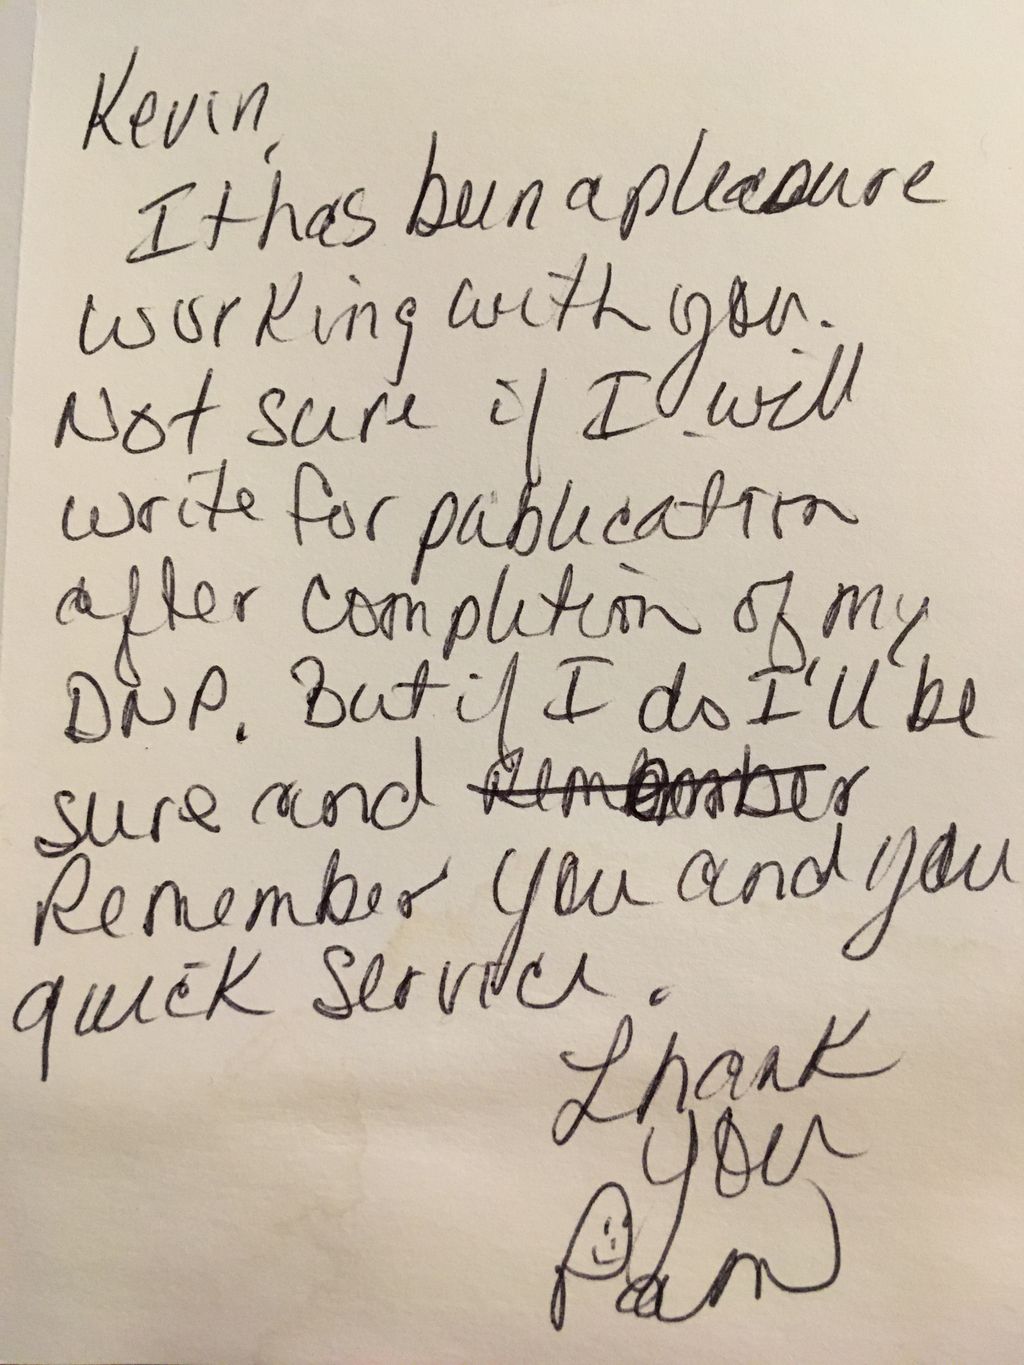 Kevin,
It has been a pleasure
working with you.
Not sure if I will
write for publication
after completion of my
DNP. But if I do I'll be
sure and Remember
Remember you and you
quick service.
Thank
you
Pam